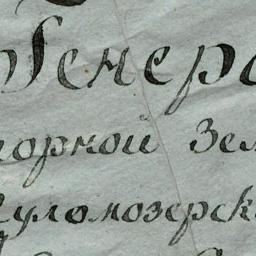 Генера
торной Зем
Куломозерск